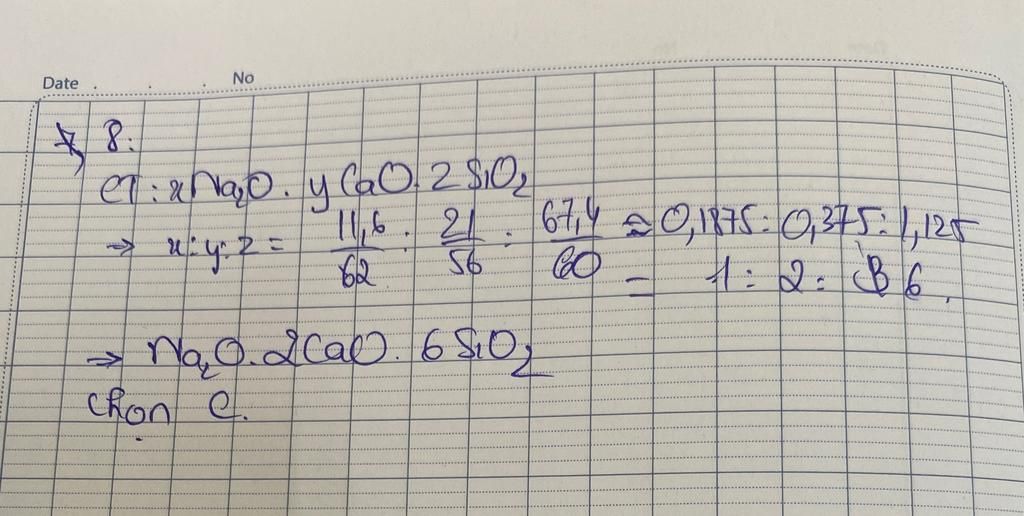 Date . . . No
*, 8:
CT: xNa₂O. yCaO. zSiO₂
⇒ x:y:z = 11,6/62 : 21/56 : 67,4/60 ≈ 0,1875 : 0,375 : 1,125
= 1 : 2 : 6.
⇒ Na₂O. 2CaO. 6SiO₂
Chọn C.